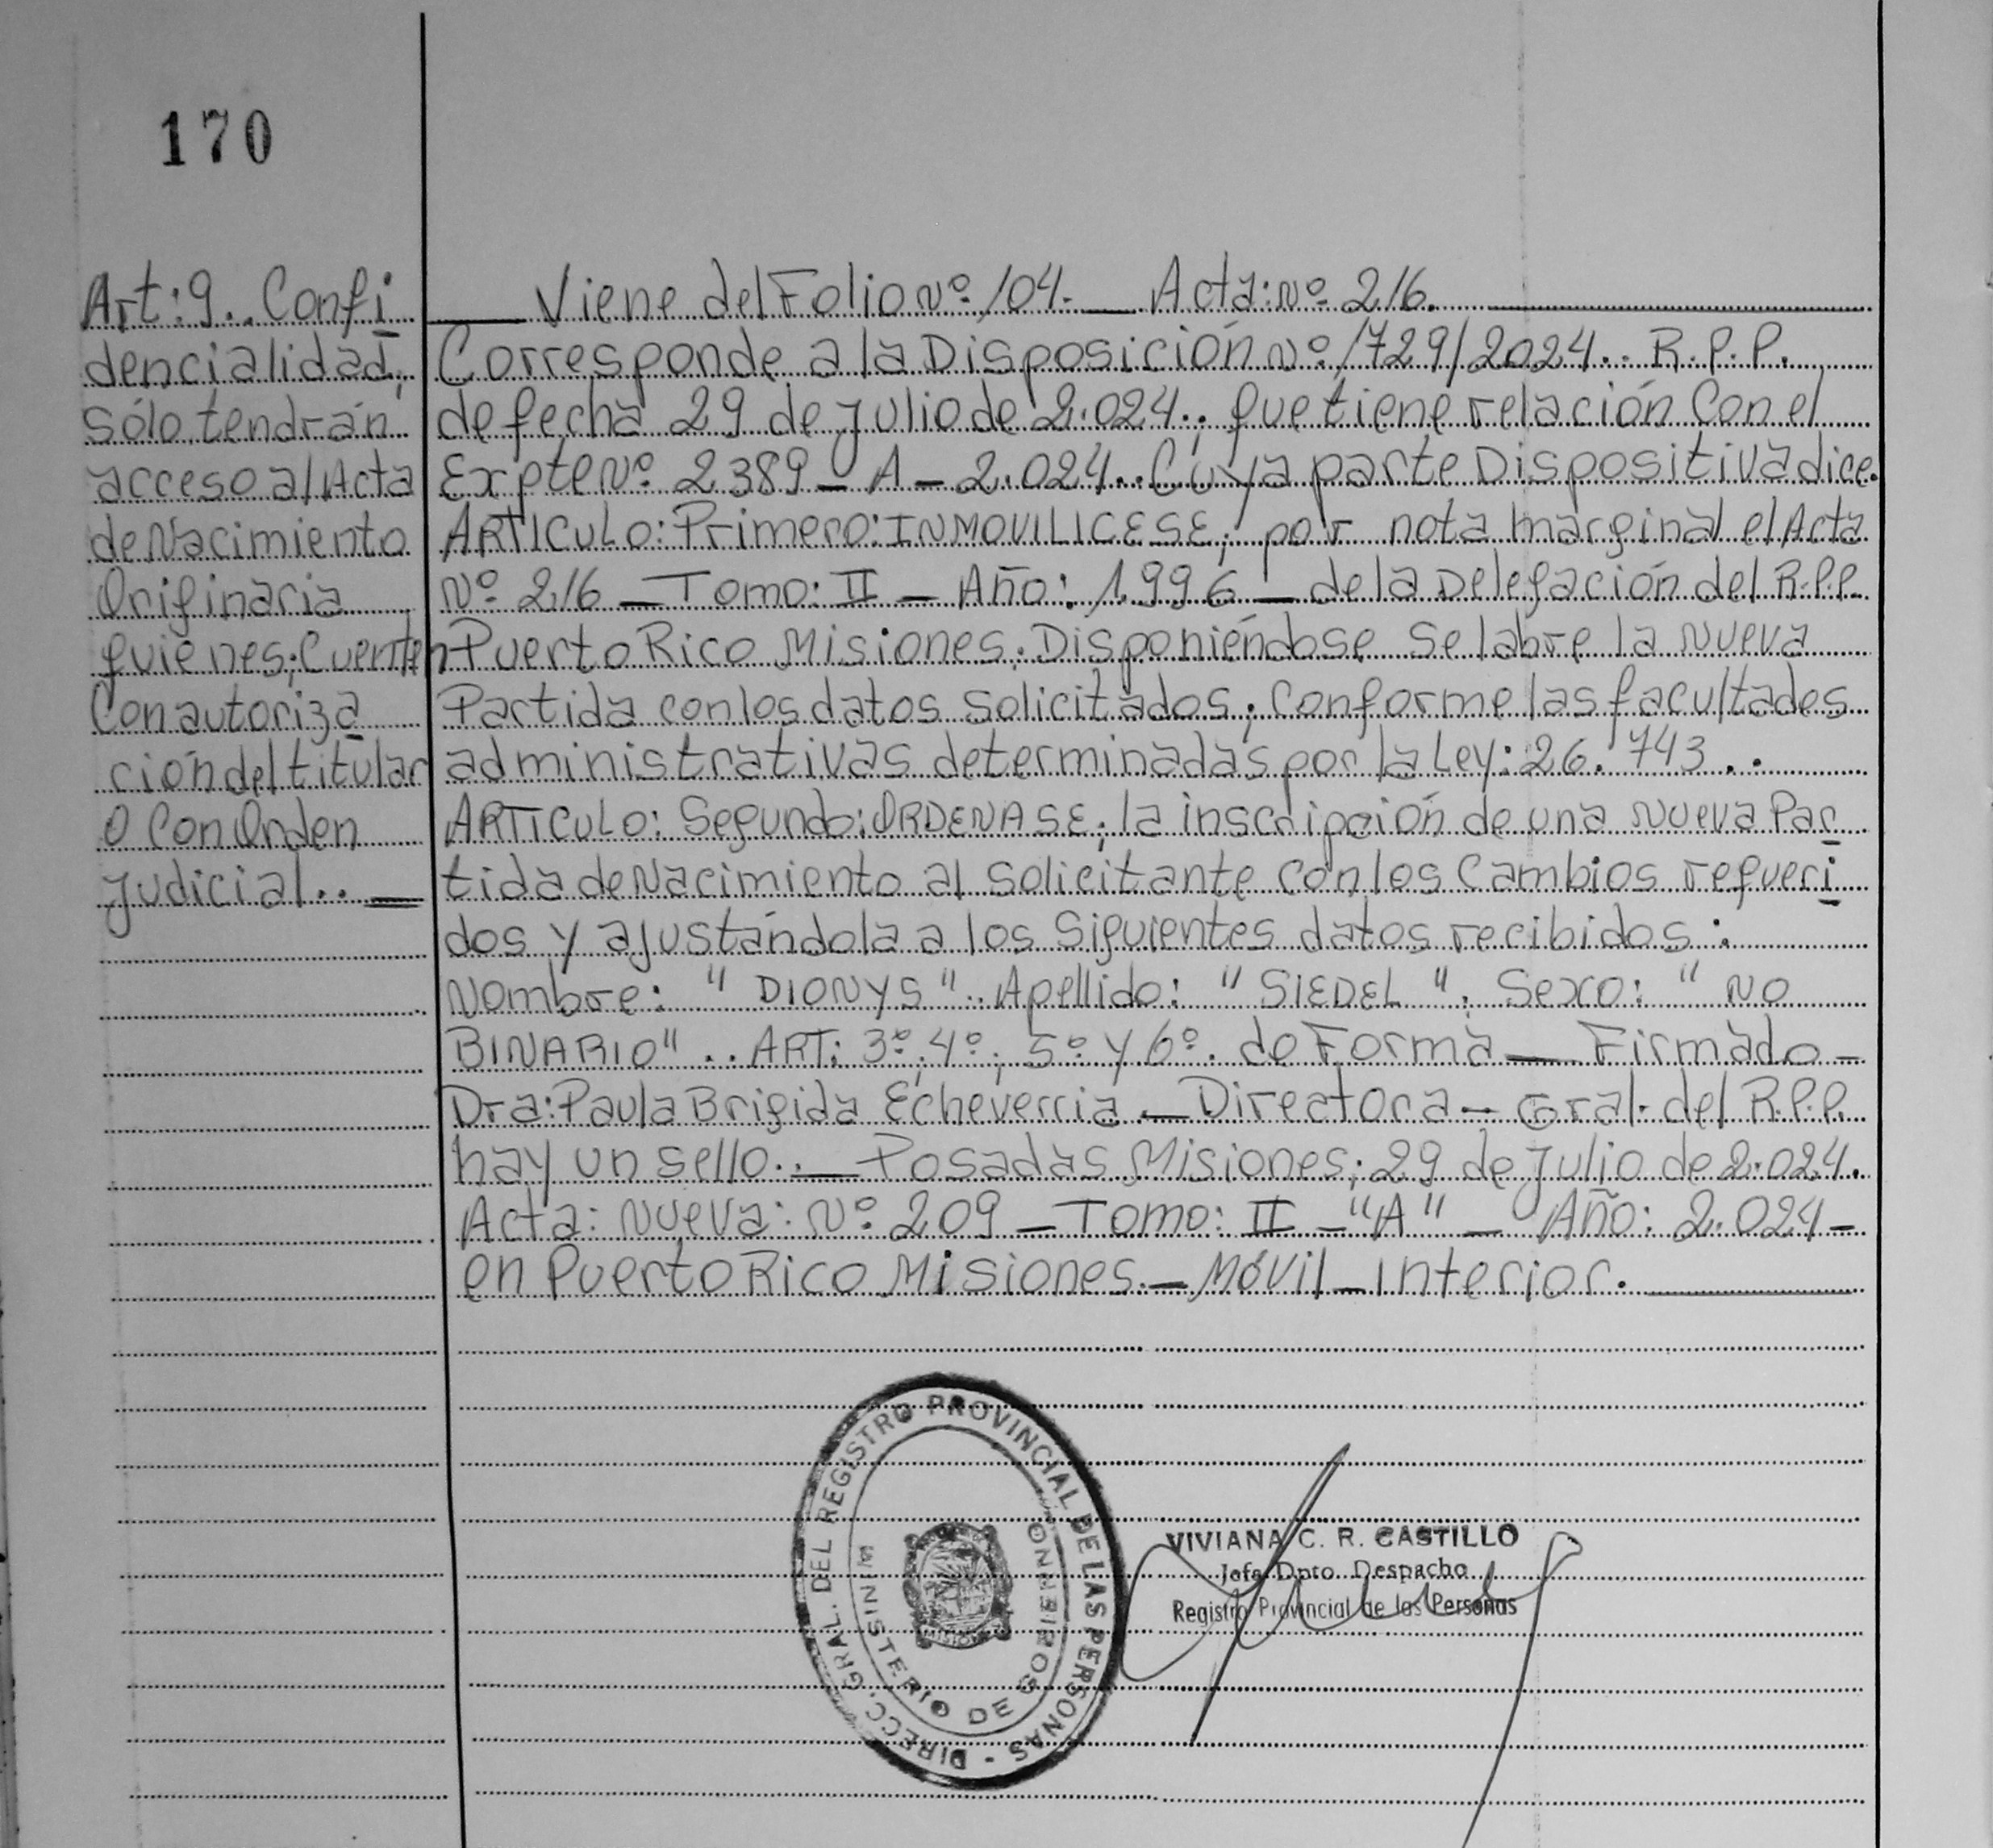 170
Art: 9.. Confi
dencialidad,
sólo tendrán
acceso al Acta
de Nacimiento
Originaria
quienes; Cuenten
Con autoriza
ción del titular
O Con Orden
Judicial.. —
— Viene del Folio Nº 104. — Acta: Nº 216.
Corresponde a la Disposición Nº 1729/2024.. R.P.P.
de fecha 29 de Julio de 2.024.; que tiene relación Con el
Expte Nº 2389 - A - 2.024.. Cuya parte Dispositiva dice.
ARTICULO: Primero: INMOVILICESE; por nota marginal el Acta
Nº 216 — Tomo: II — Año: 1.996 — de la Delegación del R.P.P.
Puerto Rico Misiones; Disponiéndose Se labre la Nueva
Partida con los datos Solicitados; Conforme las facultades
administrativas determinadas por la Ley: 26.743..
ARTICULO: Segundo: ORDENASE; la inscripción de una Nueva Par
tida de Nacimiento al Solicitante Con los Cambios requeri
dos y ajustándola a los Siguientes datos recibidos:
Nombre: "DIONYS".. Apellido: "SIEDEL". Sexo: "NO
BINARIO".. ART: 3º, 4º, 5º y 6º. de Forma — Firmado -
Dra: Paula Brigida Echeverria — Directora — Gral. del R.P.P.
hay un sello.. — Posadas Misiones; 29 de Julio de 2.024.
Acta: Nueva: Nº 209 — Tomo: II - "A" — Año: 2.024 -
en Puerto Rico Misiones. — Móvil — Interior.
DIRECC. GRAL. DEL REGISTRO PROVINCIAL DE LAS PERSONAS -
MINISTERIO DE GOBIERNO
MISIONES
VIVIANA C. R. CASTILLO
Jefa Dpto. Despacho
Registro Provincial de las Personas